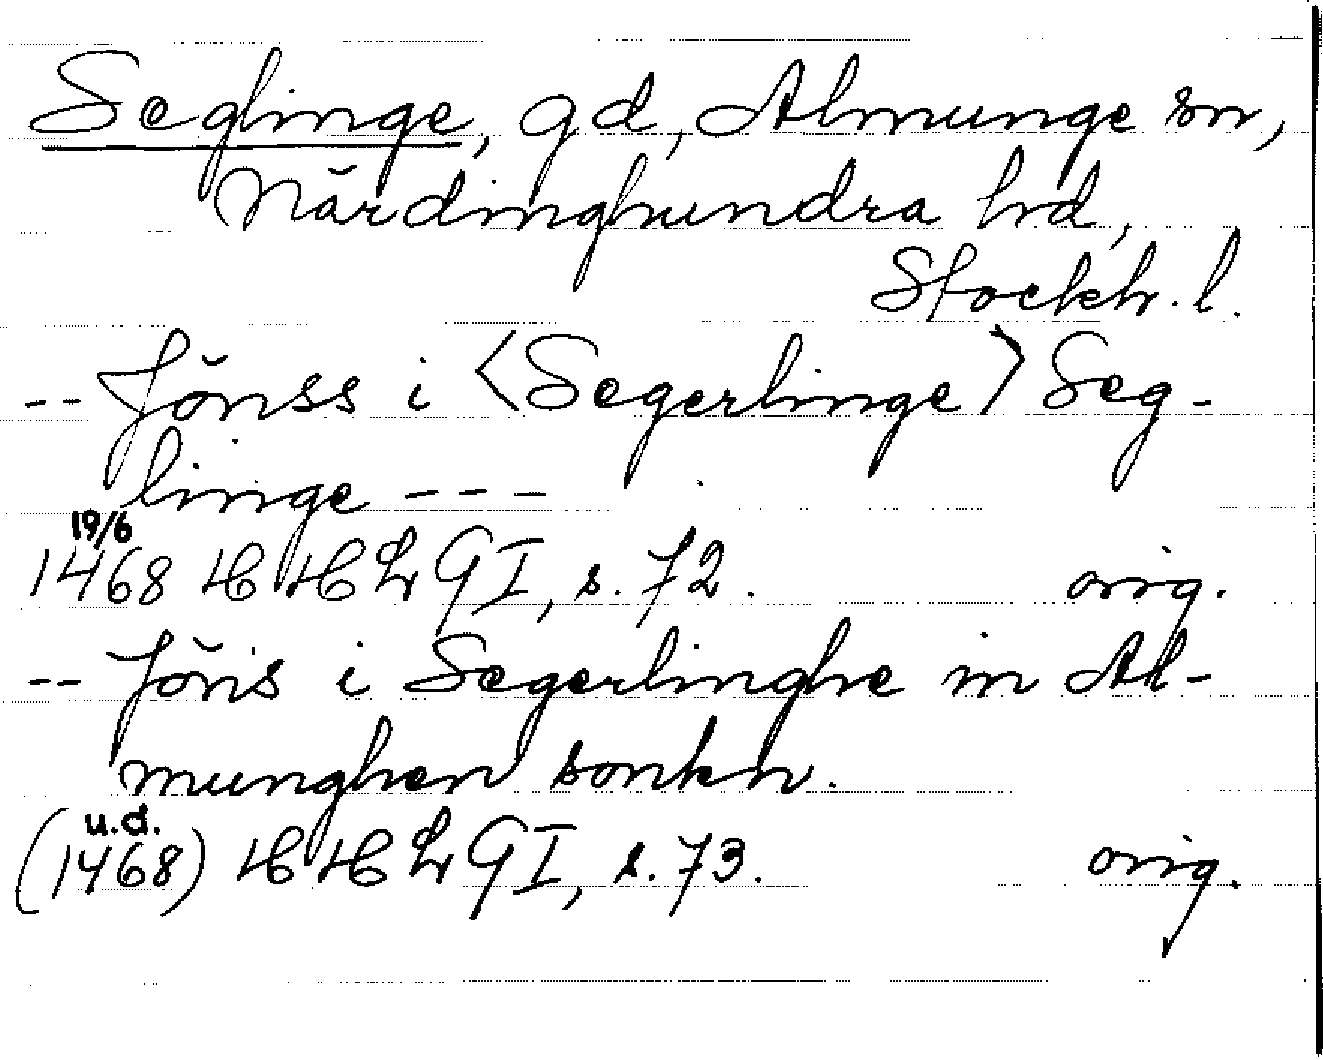 Seglinge, gd, Almunge sn,
Närdinghundra hd,
Stockh. l.
-- Jönss i <Segerlinge> Seg-
linge ---
19/6
1468 HH G I, s. 72. orig.
-- Jöns i Segerlinghe in Al-
munghen sonkn.
u.d.
(1468) HH G I, s. 73. orig.